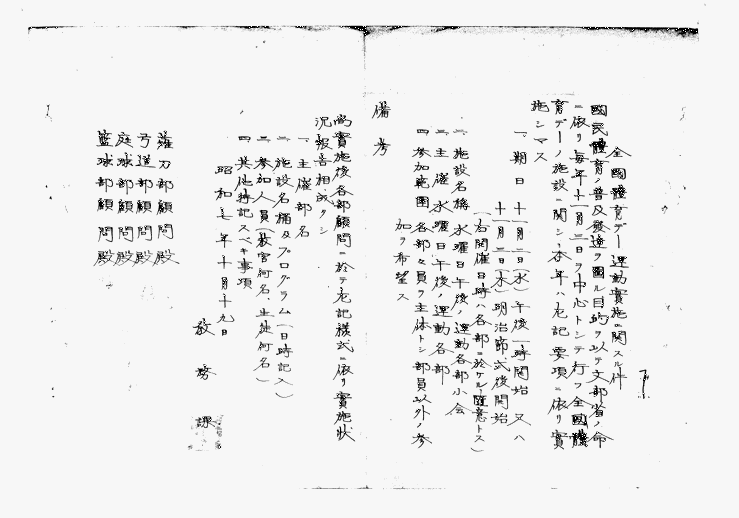 全國體育デー運動實施ニ關スル件
國民體育ノ普及發達ヲ圖ル目的ヲ以テ文部省ノ命
ニ依リ毎年十一月三日ヲ中心トシテ行フ全國體
育デーノ施設ニ關シ本年ハ左記要項ニ依リ實
施シマス
一、期日 十一月二日(水)午後一時開始 又ハ
十一月三日(木)明治節式後開始
(右開催日時ハ各部ニ於ケル隨意トス)
二、施設名稱 水曜日午後ノ運動各部小會
三、主催 水曜日午後ノ運動各部
四、參加範圍 各部々員ヲ主体トシ部員以外ノ參
加ヲ希望ス
備考
尚實施後各部顧問ニ於テ左記樣式ニ依リ實施狀
況報告相成タシ
一、主催部名
二、施設名稱及プログラム(日時記入)
三、參加人員(敎官何名、生徒何名)
四、其他特記スベキ事項
昭和七年十月十九日
敎務課
薙刀部顧問殿
弓道部顧問殿
庭球部顧問殿
籃球部顧問殿